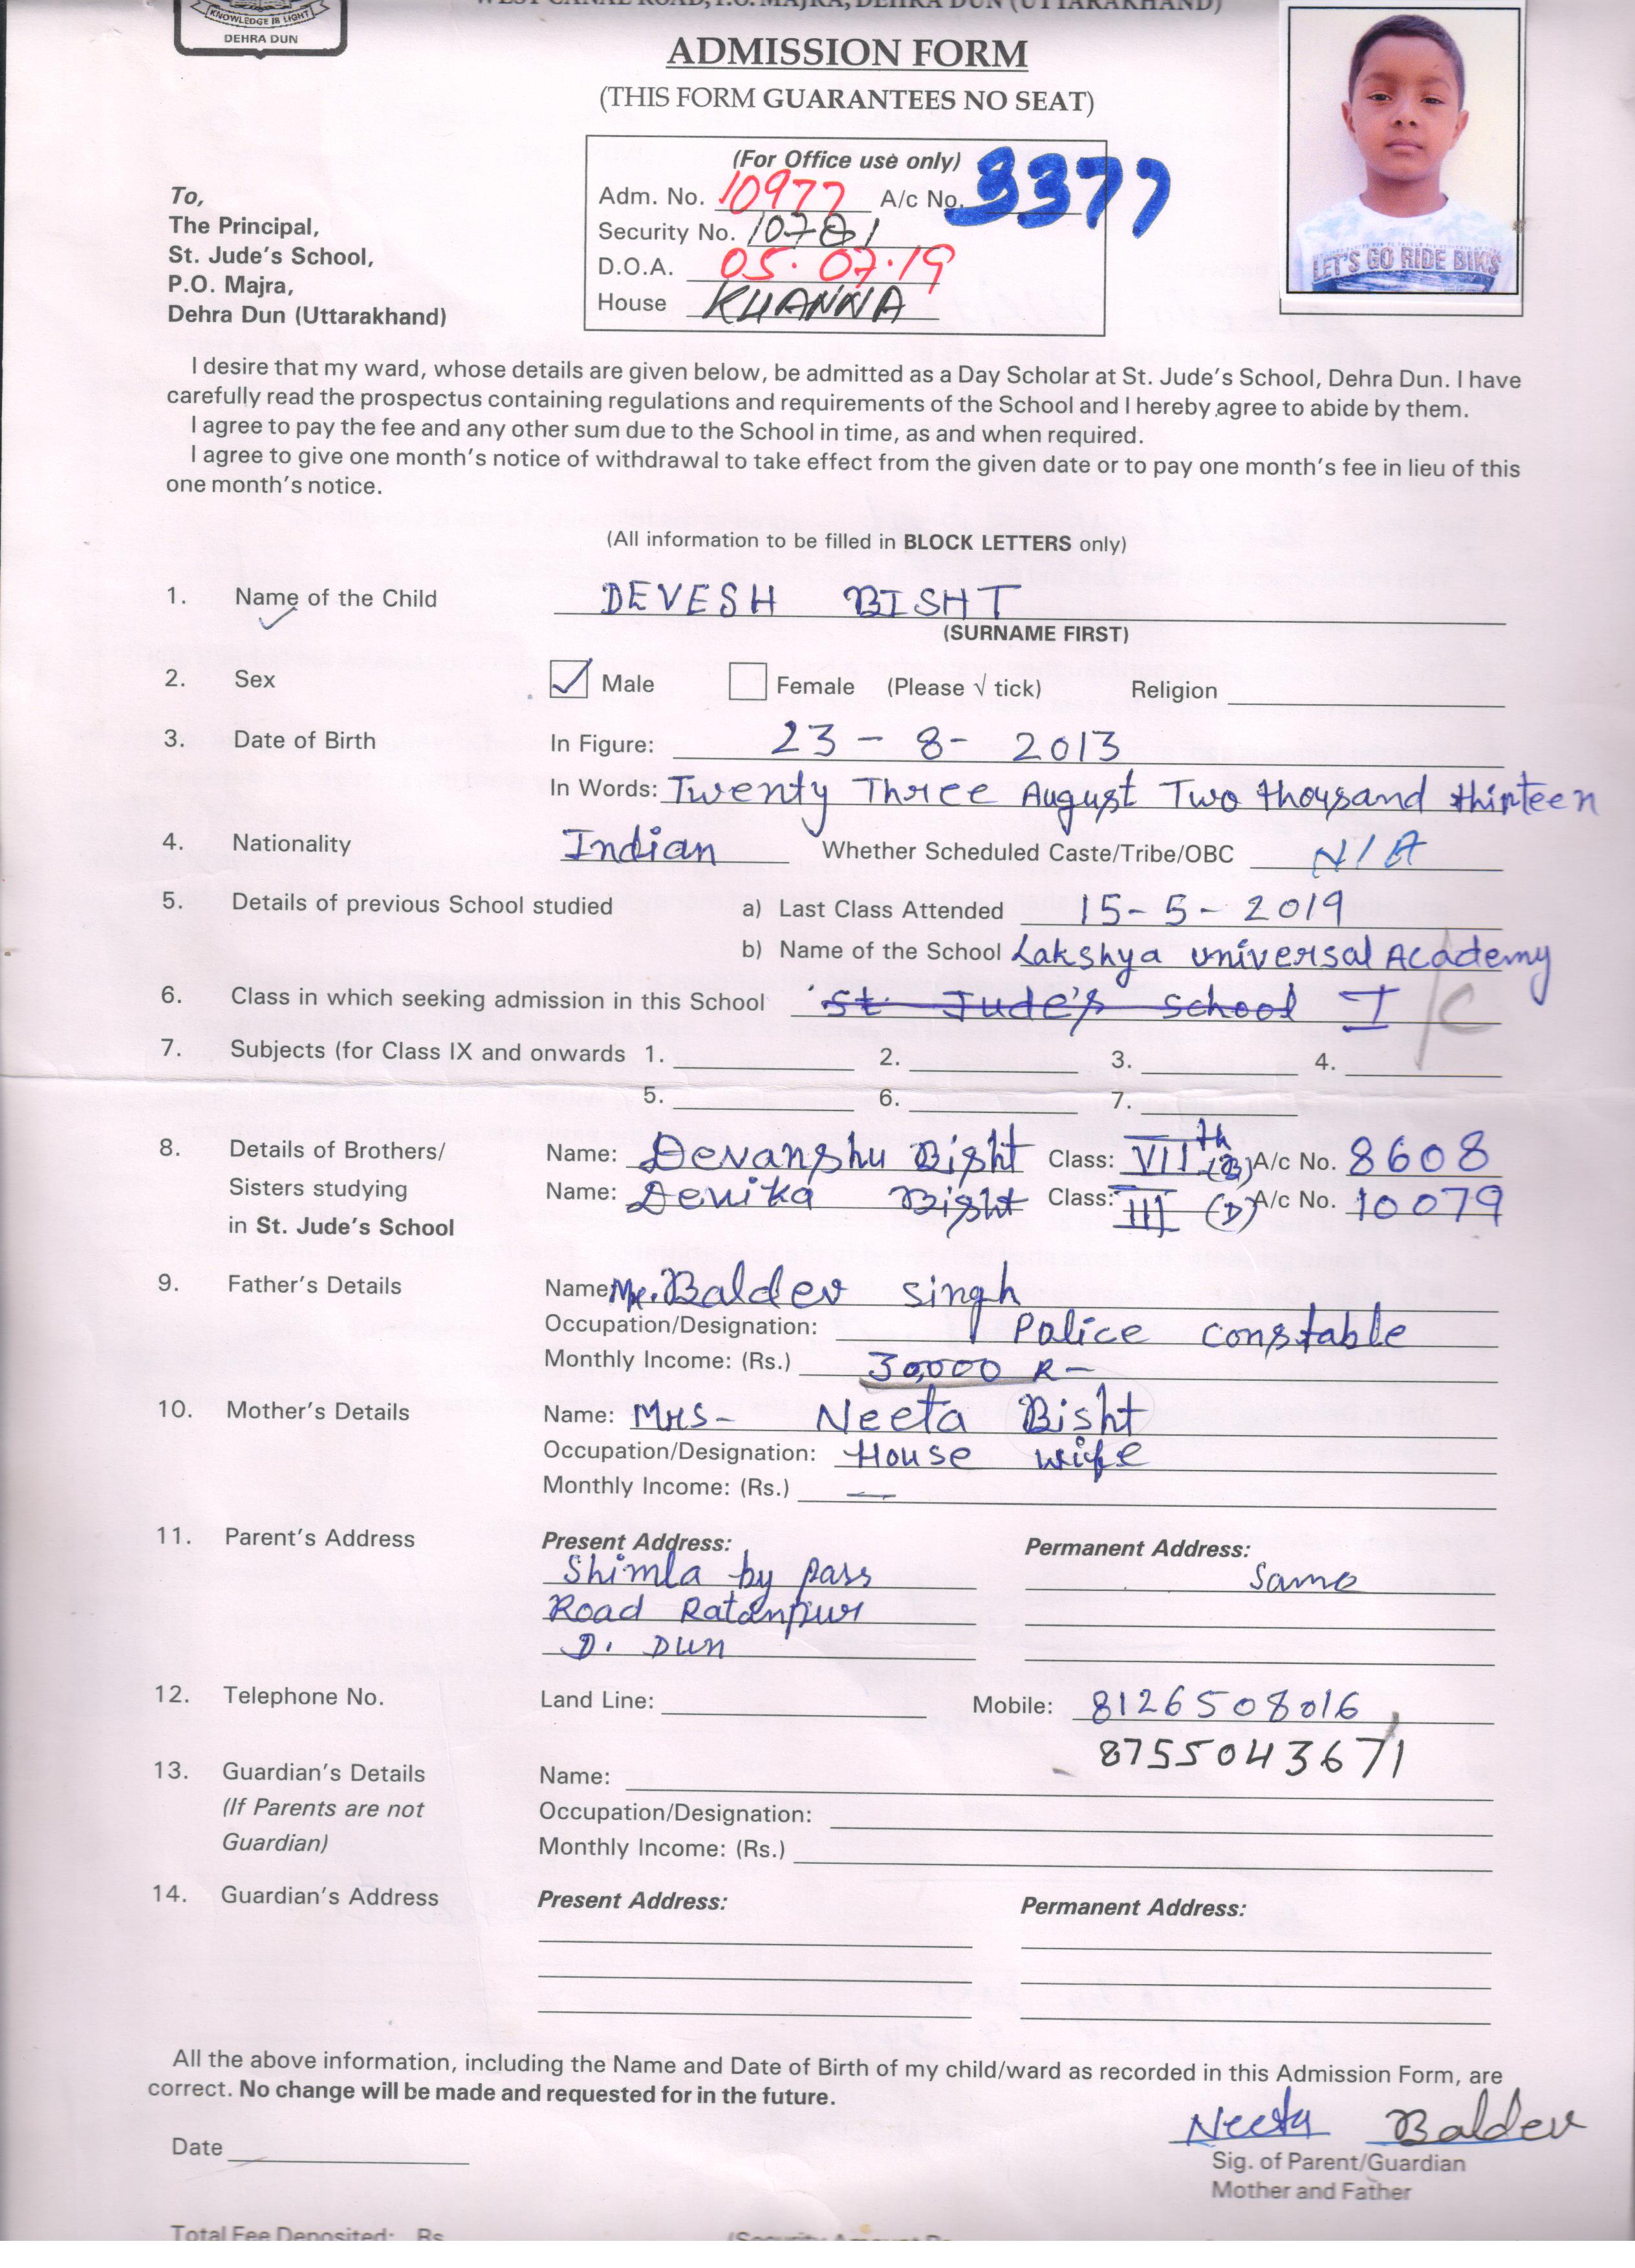 KNOWLEDGE IS LIGHT
DEHRA DUN
WEST CANAL ROAD, P.O. MAJRA, DEHRA DUN (UTTARAKHAND)
ADMISSION FORM
(THIS FORM GUARANTEES NO SEAT)
(For Office use only)
Adm. No. 10977 A/c No. 3377
Security No. 10781
D.O.A. 05.07.19
House KHANNA
LET'S GO RIDE BIKS
To,
The Principal,
St. Jude's School,
P.O. Majra,
Dehra Dun (Uttarakhand)
I desire that my ward, whose details are given below, be admitted as a Day Scholar at St. Jude's School, Dehra Dun. I have
carefully read the prospectus containing regulations and requirements of the School and I hereby agree to abide by them.
I agree to pay the fee and any other sum due to the School in time, as and when required.
I agree to give one month's notice of withdrawal to take effect from the given date or to pay one month's fee in lieu of this
one month's notice.
(All information to be filled in BLOCK LETTERS only)
1. Name of the Child DEVESH BISHT
(SURNAME FIRST)
2. Sex Male Female (Please √ tick) Religion
3. Date of Birth In Figure: 23 - 8 - 2013
In Words: Twenty Three August Two thousand thirteen
4. Nationality Indian Whether Scheduled Caste/Tribe/OBC N/A
5. Details of previous School studied a) Last Class Attended 15-5-2019
b) Name of the School Lakshya universal Academy
6. Class in which seeking admission in this School St. Jude's school I/C
7. Subjects (for Class IX and onwards 1. 2. 3. 4.
5. 6. 7.
8. Details of Brothers/ Name: Devanshu Bisht Class: VIIth (B) A/c No. 8608
Sisters studying Name: Devika Bisht Class: III (D) A/c No. 10079
in St. Jude's School
9. Father's Details Name: Mr. Baldev singh
Occupation/Designation: Police constable
Monthly Income: (Rs.) 30,000 R-
10. Mother's Details Name: Mrs- Neeta Bisht
Occupation/Designation: House wife
Monthly Income: (Rs.) —
11. Parent's Address Present Address: Permanent Address:
Shimla by pass Same
Road Ratanpur
D. DUN
12. Telephone No. Land Line: Mobile: 8126508016,
8755043671
13. Guardian's Details Name:
(If Parents are not Occupation/Designation:
Guardian) Monthly Income: (Rs.)
14. Guardian's Address Present Address: Permanent Address:
All the above information, including the Name and Date of Birth of my child/ward as recorded in this Admission Form, are
correct. No change will be made and requested for in the future.
Neeta Baldev
Date
Sig. of Parent/Guardian
Mother and Father
Total Fee Deposited: Rs.